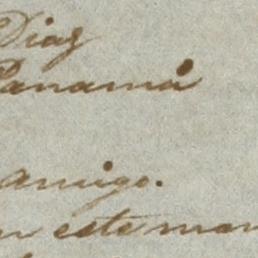 Diaz
Panamá
amigo.
n este mom